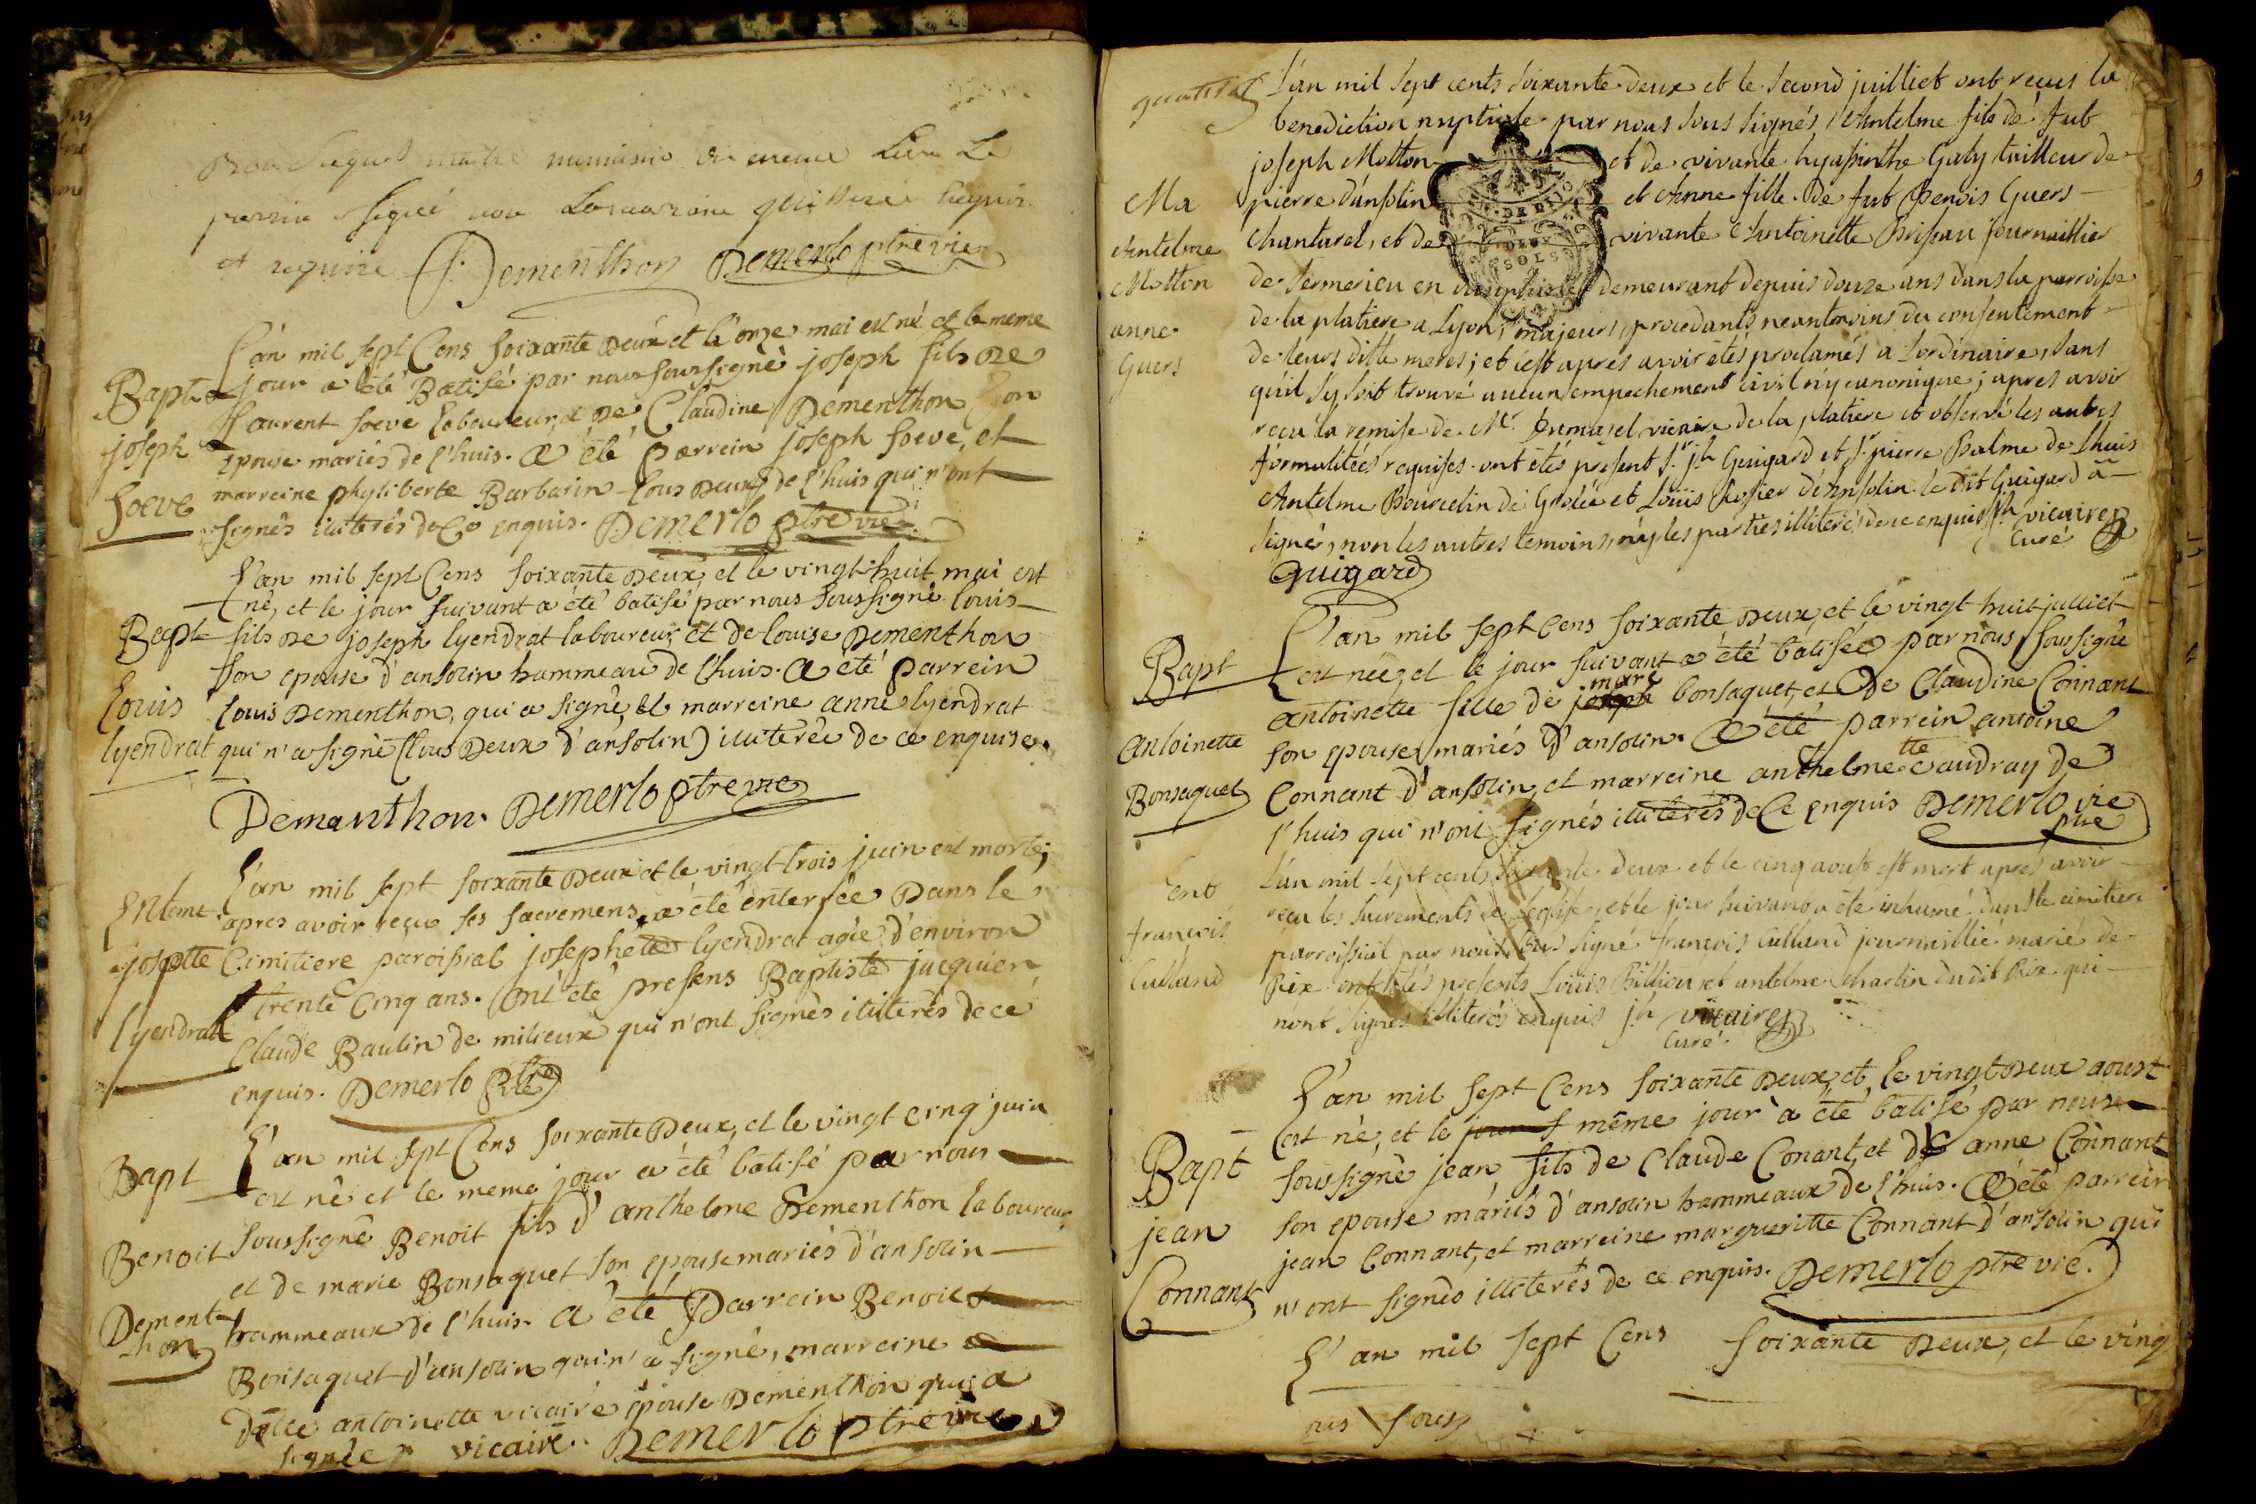 maitre
parrain signé non
et requise J: Dementhon Demerlo ptre vic
L'an mil sept Cens soixante deux et le onze mai est né et le meme
Bapt jour a été Batisé par nous soussigné joseph fils de
Laurent soeve laboureur, et de Claudine Dementhon son
joseph epouse mariés de l'huis. a été parrein joseph soeve, et
marreine phyliberte Barbarin tous deux de l'huis qui n'ont
soeve signés iliterés de Ce enquis. Demerlo ptre vic
L'an mil sept Cens soixante deux, et le vingt-huit mai est
né, et le jour suivant a été batisé par nous soussigné louis
Bapt fils de joseph lyendrat laboureur, et de louise Dementhon
son epouse d'ansolin hammeau de l'huis. a été parrein
Louis louis Dementhon, qui a signé, et marreine anne lyendrat
lyendrat qui n'a signé (tous deux d'ansolin) iliterée de ce enquise.
Demanthon. Demerlo ptre vic
L'an mil sept soixante deux et le vingt-trois juin est morte,
Enteme apres avoir reçu ses sacremens, a été enterrée dans le
josptte Cimitiere paroissial josephete lyendrat agée d'environ
trente Cinq ans. Ont été presens Baptiste jacquier
lyendrat Claude Baulin de milieux qui n'ont signés iliterés de ce
enquis. Demerlo ptre
L'an mil spt Cens soixante deux, et le vingt cinq juin
Bapt est né et le meme jour a été batisé par nous
Benoit soussigné Benoit fils d'anthelme Dementhon laboureur
et de marie Bonsaquet son epouse mariés d'ansolin
Dement- hammeaux de l'huis. a été Parrein Benoit
thon Bonsaquet d'ansolin qui n'a signé, marreine
Dlle antoinette vicaire epouse Dementhon qui a
signée vicaire. Demerlo ptre vic
L'an mil sept cents soixante deux et le second juilliet ont reçus la
benediction nuptiale par nous sous signés, Antelme fils de fut
joseph Motton et de vivante hyassinthe Gaty tailleur de
Ma pierre d'ansolin et Anne fille de fut Benois Guers
Antelme Chantarel, et de vivante Antoinette Brissau journaillier
Motton de Sermerieu en dauphiné demeurant depuis douze ans dans la parroisse
anne de la platiere a Lyon, majeurs, procedants neantmoins du consentement
Guers de leurs ditte meres; et c'est apres avoir etés proclamés a Lordinaire, sans
qu'il sy soit trouvé aucun empechement civil n'y canonique; apres avoir
reçu la remise de Mr. Dumarel vicaire de la platiere et observé les autres
formalitées requises. ont étés present Sr. jh Guigard et Sr. pierre Balme de Lhuis
Antelme Bourcelin de Groslée et Louis Rosier d'Ansolin. le dit Guigard a
signé, non les autres temoins, n'y les parties illiterés de ce enquis jh vicaire
Guigard Curé
L'an mil sept Cens soixante deux, et le vingt huit julliet
Bapt est née, et le jour suivant a été batisée par nous soussigné
marc
antoinette fille de joseph bonsaquet, et de Claudine Connant
Antoinette son epouse mariés d'ansolin. a été parrein antoine
Bonsaquet Connant d'ansolin, et marreine anthelmette Caudray de
l'huis qui n'ont signés iliterés de Ce enquis Demerlo vic
ptre
L'an mil sept cents soixante deux et le cinq aoust est mort apres avoir
Ent reçu les sacrements de leglise, et le jour suivant a été inhumé dans le cimitiere
francois parroissial par nous sous signé françois Culland journaillié marié de
Culland Rix ont étés presents Louis Billieu et antelme Charlin dudit Rix qui
n'ont signés illiterés enquis jh vicaire
Curé.
L'an mil sept Cens soixante deux, et le vingt deux aoust
est né, et le jour même jour a été batisé par nous
Bapt soussigné jean fils de Claude Conant, et de anne Connant
son epouse mariés d'ansolin hammeaux de l'huis. a été parrein
jean jean Connant, et marreine margueritte Connant d'ansolin qui
Connant n'ont signés illiterés de ce enquis. Demerlo ptre vic.
L'an mil sept Cens soixante deux, et le ving